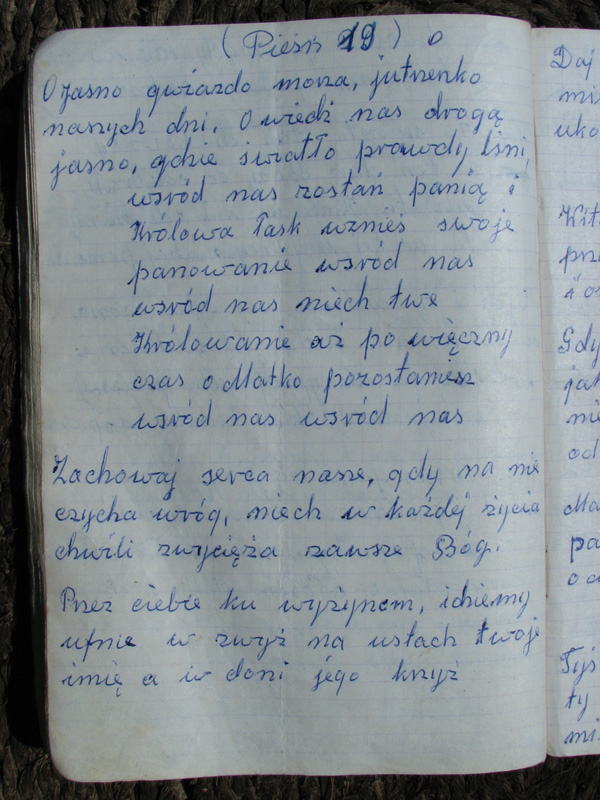 ( Pieśń 19 ) o
O Jasno gwiazdo morza, jutrzenko
naszych dni, O wiedź nas drogą
jasno, gdzie światło prawdy lśni,
wśród nas zostań panią i
Królowa łask wznieś swoje
panowanie wśród nas
wśród nas niech twe
Królowanie aż po wieczny
czas o Matko pozostaniesz
wśród nas wśród nas
Zachowaj serca nasze, gdy na nie
czycha wróg, niech w każdej życia
chwili zwycięża zawsze Bóg.
Przez ciebie ku wyżynom, idziemy
ufnie w zwyż na ustach twoje
imię a w doni jego krzyż
Daj
uko
Gdy
nie
od
pa
Tyś
ty